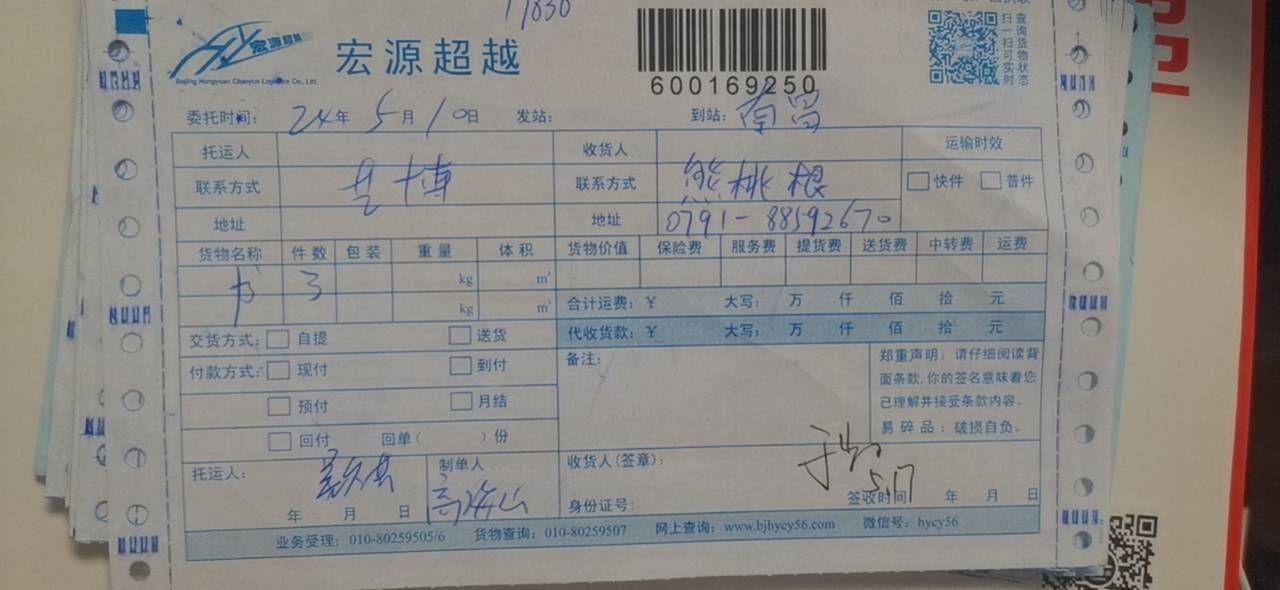 11830
宏源超越
宏源超越
Beijing Hongyuan Chaoyue Logistics Co., Ltd.
600169250
查询货物状态
扫一扫可实时
委托时间: 24年 5月 10日 发站: 到站: 南昌
托运人 收货人 运输时效
联系方式 艺博 联系方式 熊桃根 快件 普件
地址 地址 0791-88592670
货物名称 件数 包装 重量 体积 货物价值 保险费 服务费 提货费 送货费 中转费 运费
书 3 kg m³
kg m³ 合计运费: ¥ 大写: 万 仟 佰 拾 元
交货方式: 自提 送货 代收货款: ¥ 大写: 万 仟 佰 拾 元
付款方式: 现付 到付 备注:
预付 月结
回付 回单( )份
郑重声明: 请仔细阅读背
面条款,你的签名意味着您
已理解并接受条款内容。
易碎品: 破损自负。
托运人: 制单人 收货人(签章):
高海山 5.17
年 月 日 身份证号: 签收时间 年 月 日
业务受理: 010-80259505/6 货物查询: 010-80259507 网上查询: www.bjhycy56.com 微信号: hycy56